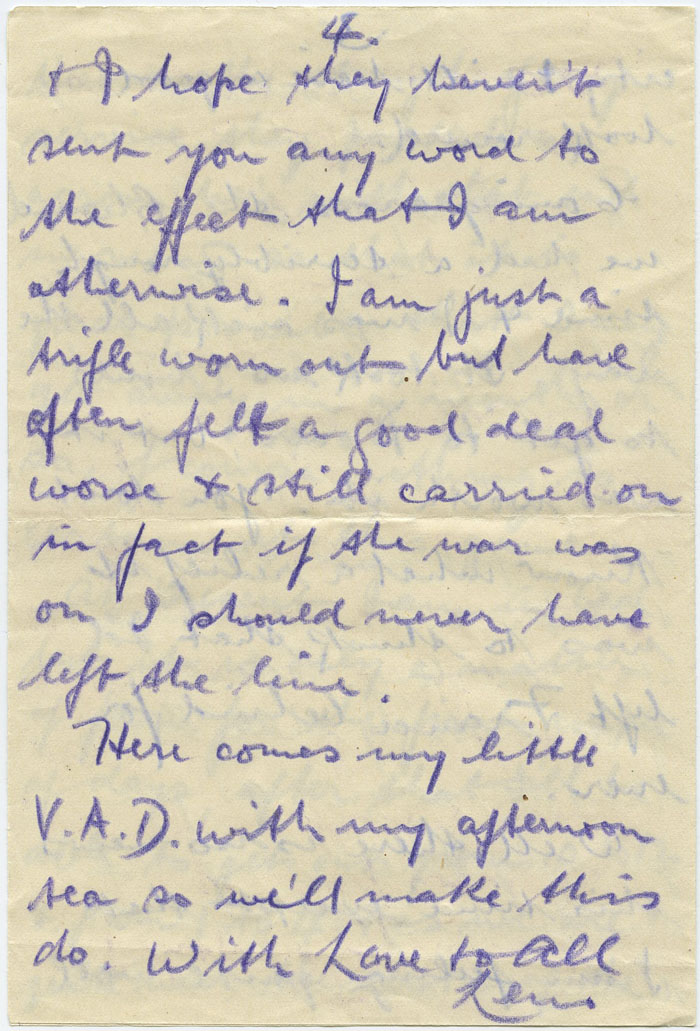 4.
+ I hope they haven't
sent you any word to
the effect that I am
otherwise. I am just a
trifle worn out but have
often felt a good deal
worse + still carried on
in fact if the war was
on I should never have
left the line.
Here comes my little
V.A.D. with my afternoon
tea so we'll make this
do. With Love to all